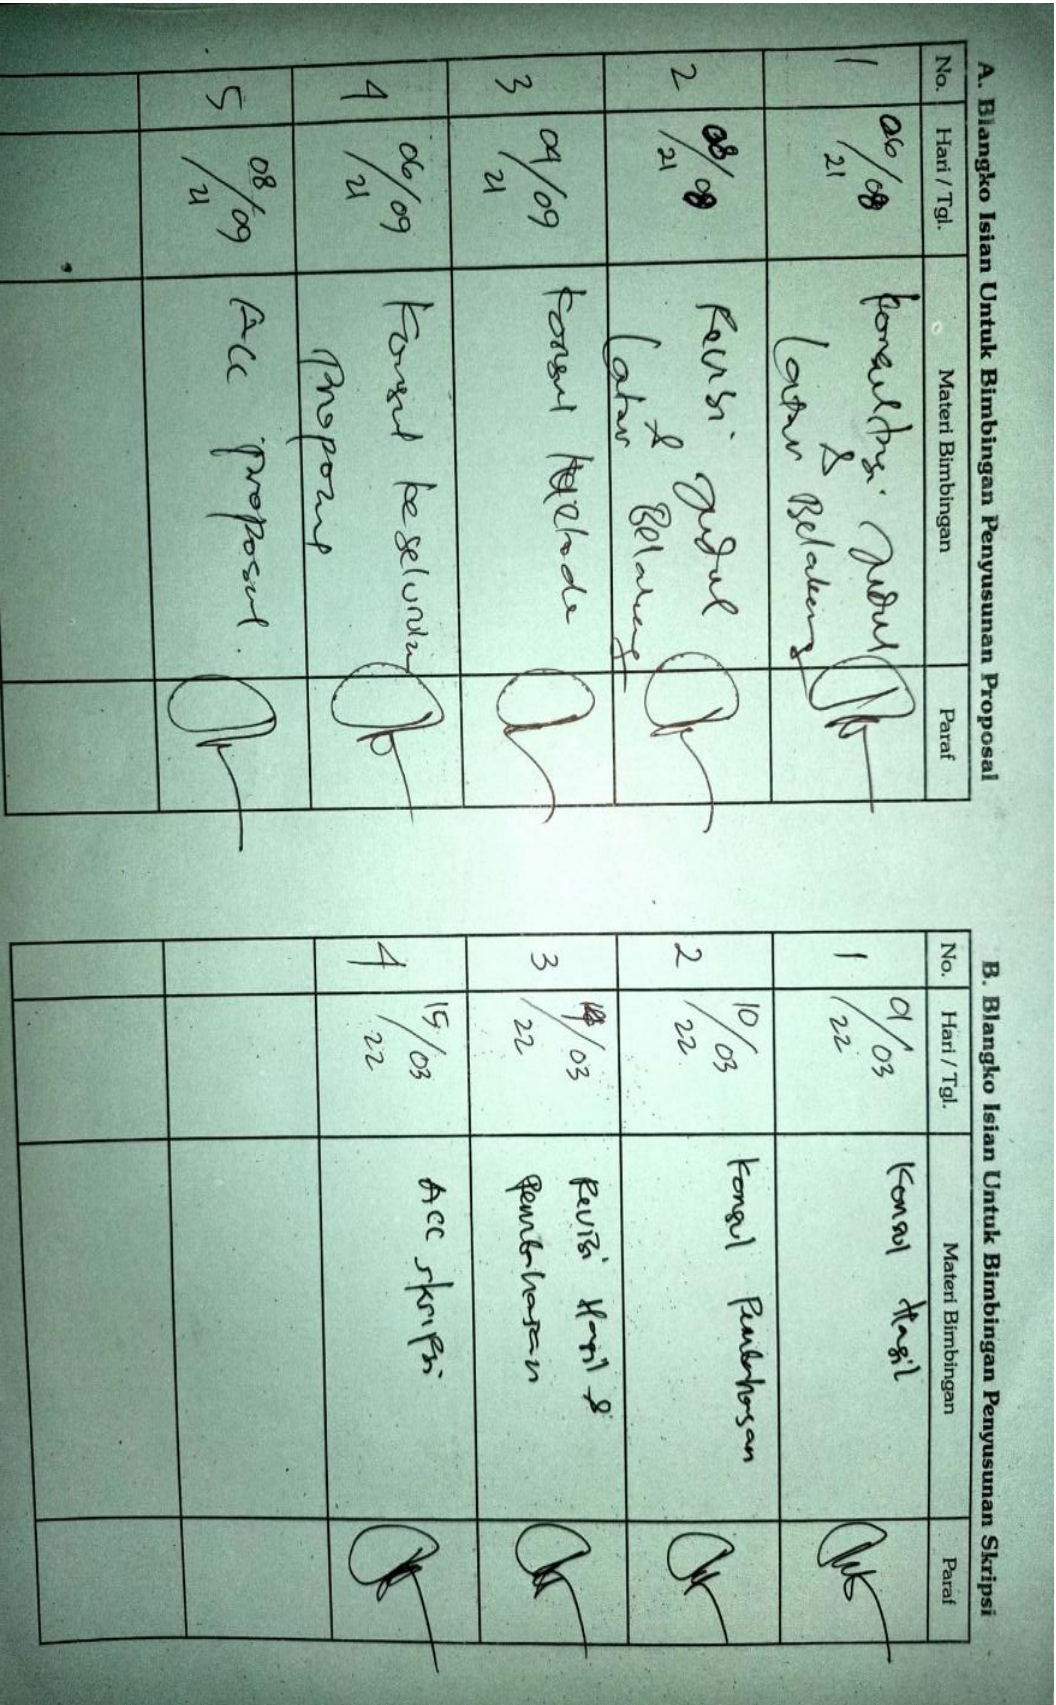 A. Blangko Isian Untuk Bimbingan Penyusunan Proposal
No. Hari / Tgl. Materi Bimbingan Paraf
1 06/08/21 Konsultasi Judul
& Latar Belakang
2 08/08/21 Revisi Judul
& Latar Belakang
3 04/09/21 Konsul Metode
4 06/09/21 Konsul keseluruhan
Proposal
5 08/09/21 Acc proposal.
B. Blangko Isian Untuk Bimbingan Penyusunan Skripsi
No. Hari / Tgl. Materi Bimbingan Paraf
1 01/03/22 Konsul Hasil
2 10/03/22 Konsul Pembahasan
3 /03/22 Revisi Hasil &
pembahasan
4 15/03/22 ACC skripsi